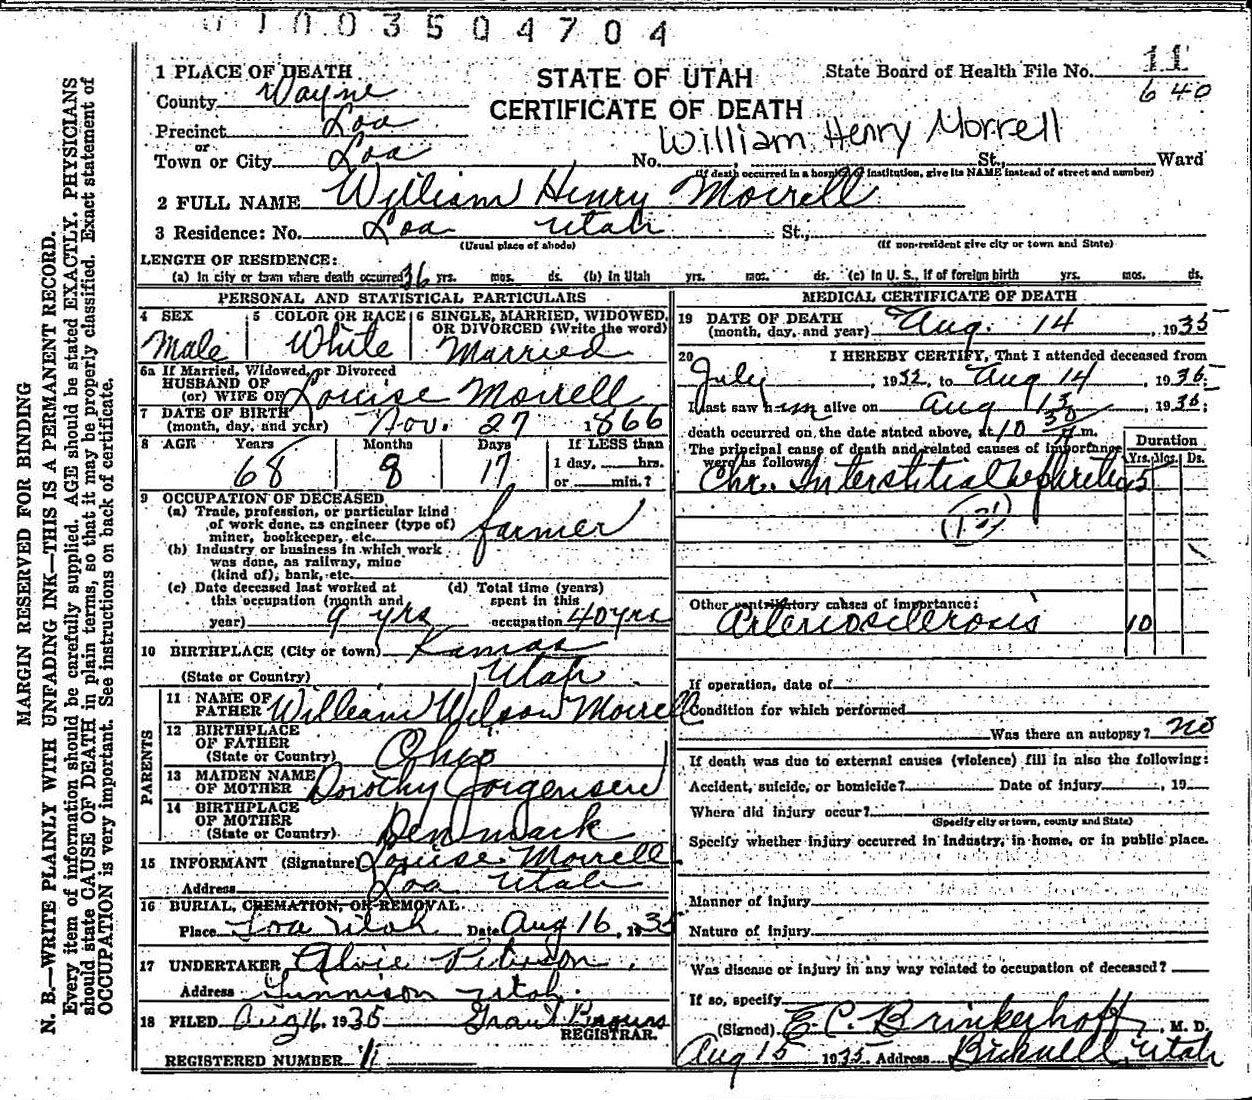 1003504704
1 PLACE OF DEATH
STATE OF UTAH
CERTIFICATE OF DEATH
State Board of Health File No. 11
640
County Wayne
Precinct Loa
or
Town or City Loa No. St., Ward
William Henry Morrell
(If death occurred in a hospital or institution, give its NAME instead of street and number)
2 FULL NAME William Henry Morrell
3 Residence: No. Loa Utah St.,
(Usual place of abode) (If non-resident give city or town and State)
LENGTH OF RESIDENCE:
(a) In city or town where death occurred 36 yrs. mos. ds. (b) In Utah yrs. mos. ds. (c) In U. S., if of foreign birth yrs. mos. ds.
PERSONAL AND STATISTICAL PARTICULARS
4 SEX 5 COLOR OR RACE 6 SINGLE, MARRIED, WIDOWED,
OR DIVORCED (Write the word)
Male White Married
6a If Married, Widowed, or Divorced
HUSBAND OF
(or) WIFE OF Louise Morrell
7 DATE OF BIRTH
(month, day, and year) Nov. 27 1866
8 AGE Years Months Days If LESS than
68 8 17 1 day, hrs.
or min.?
9 OCCUPATION OF DECEASED
(a) Trade, profession, or particular kind
of work done, as engineer (type of)
miner, bookkeeper, etc. farmer
(b) Industry or business in which work
was done, as railway, mine
(kind of); bank, etc.
(c) Date deceased last worked at
this occupation (month and
year) 9 yrs
(d) Total time (years)
spent in this
occupation 40 yrs
10 BIRTHPLACE (City or town) Kamas
(State or Country) Utah
PARENTS
11 NAME OF
FATHER William Wilson Morrell
12 BIRTHPLACE
OF FATHER
(State or Country) Ohio
13 MAIDEN NAME
OF MOTHER Dorothy Jorgensen
14 BIRTHPLACE
OF MOTHER
(State or Country) Denmark
15 INFORMANT (Signature) Louise Morrell
Address Loa Utah
16 BURIAL, CREMATION, OR REMOVAL
Place Loa Utah Date Aug 16, 1935
17 UNDERTAKER Alvie
Address Gunnison Utah.
18 FILED Aug 16 1935 Grant
REGISTRAR.
REGISTERED NUMBER 11
MEDICAL CERTIFICATE OF DEATH
19 DATE OF DEATH
(month, day, and year) Aug. 14, 1935
20 I HEREBY CERTIFY, That I attended deceased from
July, 1932, to Aug 14, 1935;
I last saw him alive on Aug 13, 1935;
death occurred on the date stated above, at 10 30 m.
The principal cause of death and related causes of importance
were as follows:
Duration
Yrs. Mos. Ds.
Chr. Interstitial Nephritis 5
131
Other contributory causes of importance:
Arteriosclerosis 10
If operation, date of
Condition for which performed
Was there an autopsy? no
If death was due to external causes (violence) fill in also the following:
Accident, suicide, or homicide? Date of injury, 19
Where did injury occur?
(Specify city or town, county and State)
Specify whether injury occurred in industry, in home, or in public place.
Manner of Injury
Nature of Injury
Was disease or injury in any way related to occupation of deceased?
If so, specify
(Signed) E. C. Brinkerhoff, M. D.
Aug 15 1935 Address Bicknell, Utah
MARGIN RESERVED FOR BINDING
N. B.—WRITE PLAINLY WITH UNFADING INK—THIS IS A PERMANENT RECORD.
Every item of information should be carefully supplied. AGE should be stated EXACTLY. PHYSICIANS
should state CAUSE OF DEATH in plain terms, so that it may be properly classified. Exact statement of
OCCUPATION is very important. See instructions on back of certificate.